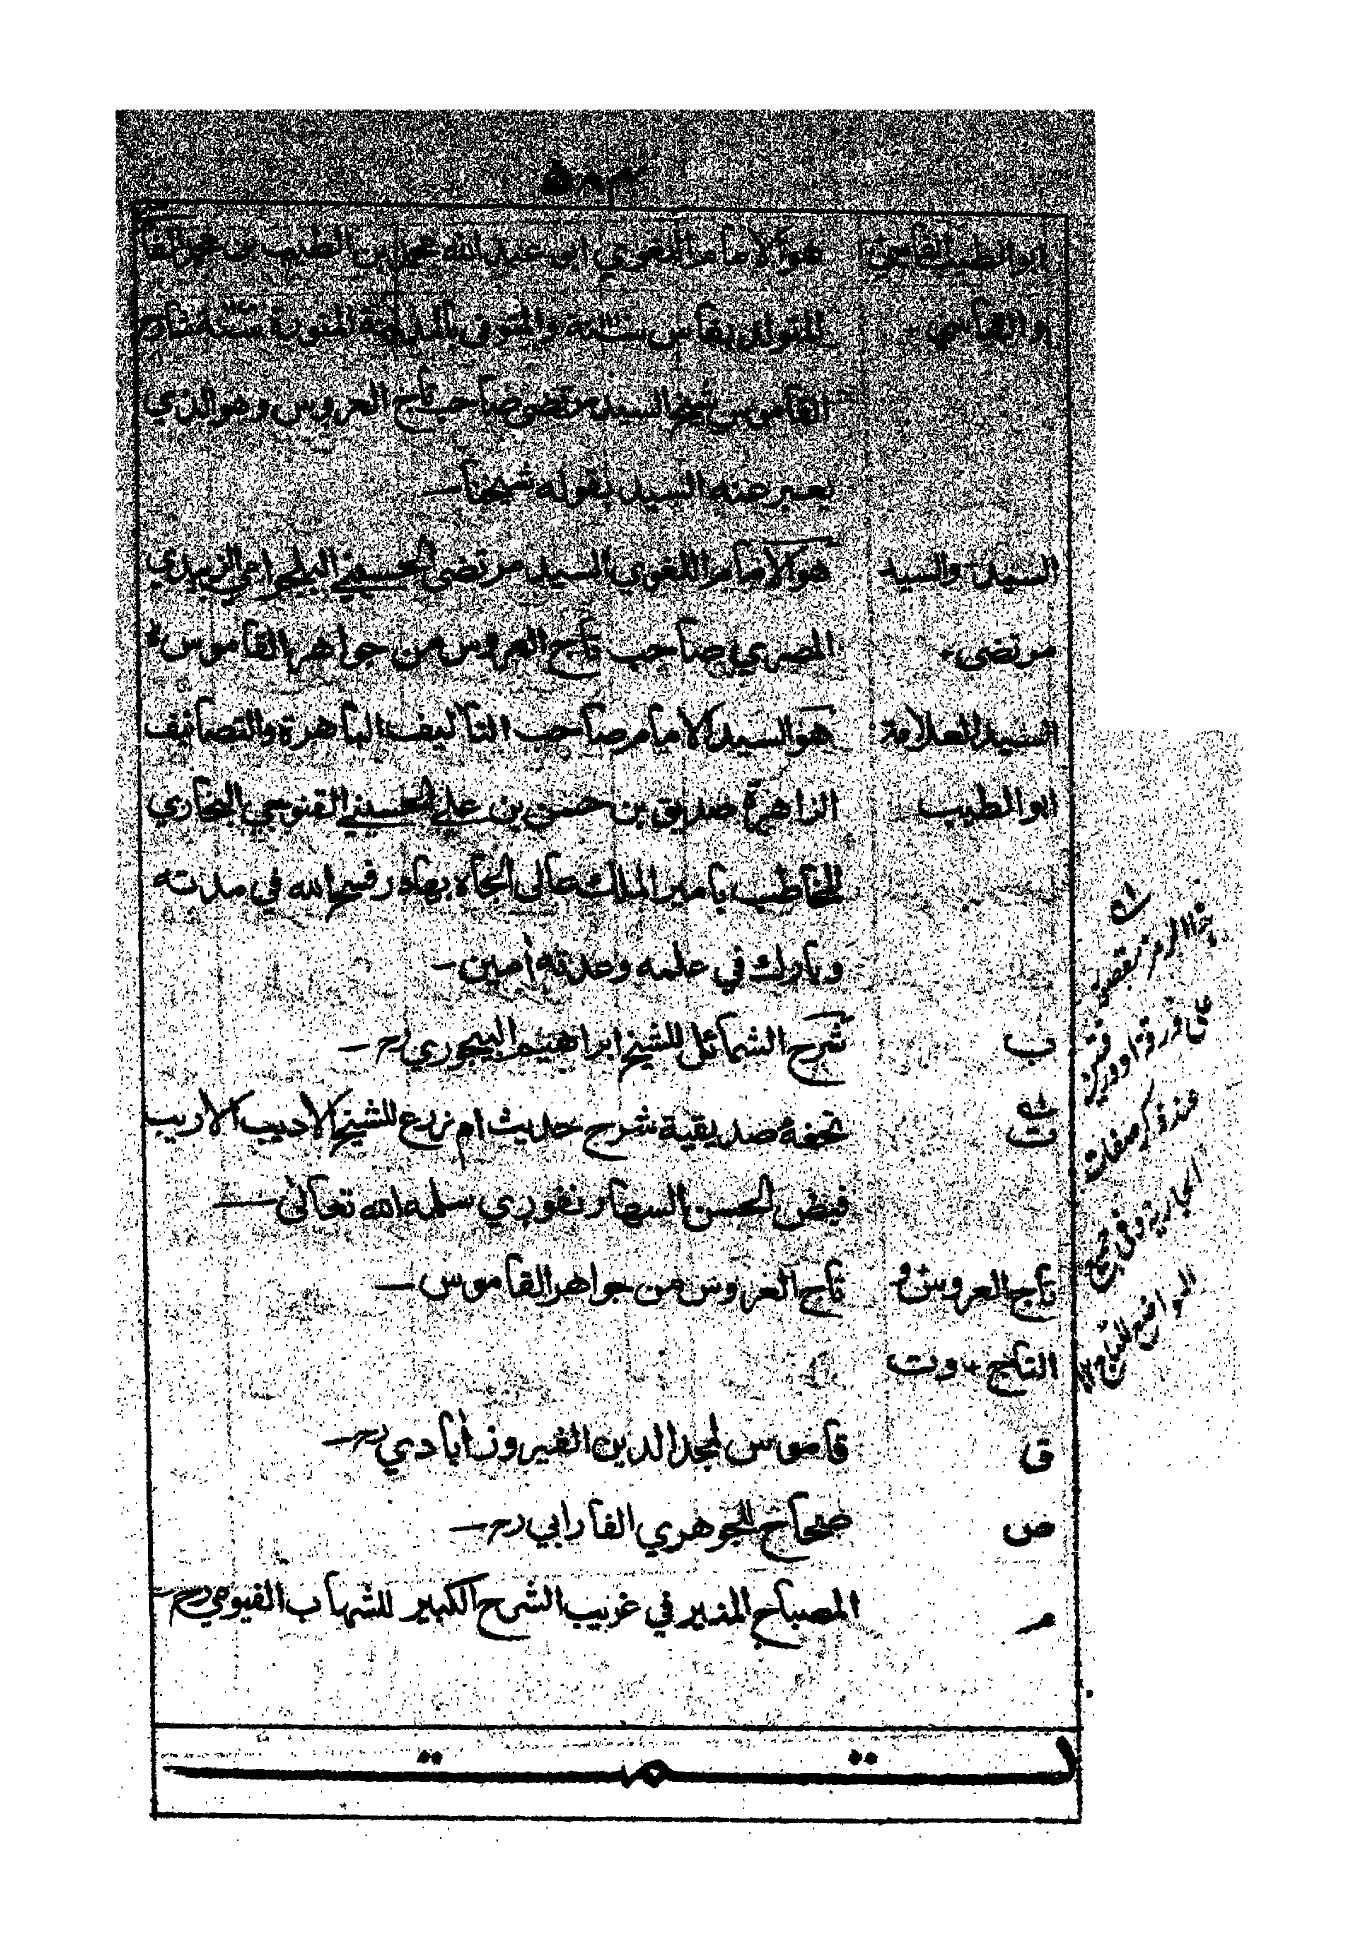 ابو الطيب الفاسي هو الامام اللغوي ابو عبد الله محمد بن الطيب بن محمد الفا
والفاسي - المتولد بفاس والمتوفى بالمدينة المنورة
القاموس شيخ السيد مرتضى صاحب تاج العروس وهو الذي
يعبر عنه السيد بقوله شيخنا —
السيد والسيد هو الامام اللغوي السيد مرتضى الحسيني البلجرامي الزبيدي
مرتضى - المصري صاحب تاج العروس من جواهر القاموس
السيد العلامة هو السيد الامام صاحب التآليف الباهرة والتصانيف
ابو الطيب الزاهرة صديق بن حسن بن علي الحسيني القنوجي البخاري
المخاطب بامير الملك عالي الجاه بهادر فسح الله في مدته
وبارك في علمه وعدته أمين —
ب شرح الشمائل للشيخ ابراهيم البيجوري رح —
ت تحفة صديقية شرح حديث ام زرع للشيخ الاديب الاريب
فيض الحسن السهارنفوري سلمه الله تعالى —
تاج العروس و تاج العروس من جواهر القاموس —
التاج - وت
ق قاموس لمجد الدين الفيروز أبادي رح —
ص صحاح للجوهري الفارابي رح —
م المصباح المنير في غريب الشرح الكبير للشهاب الفيومي رح —
تمت